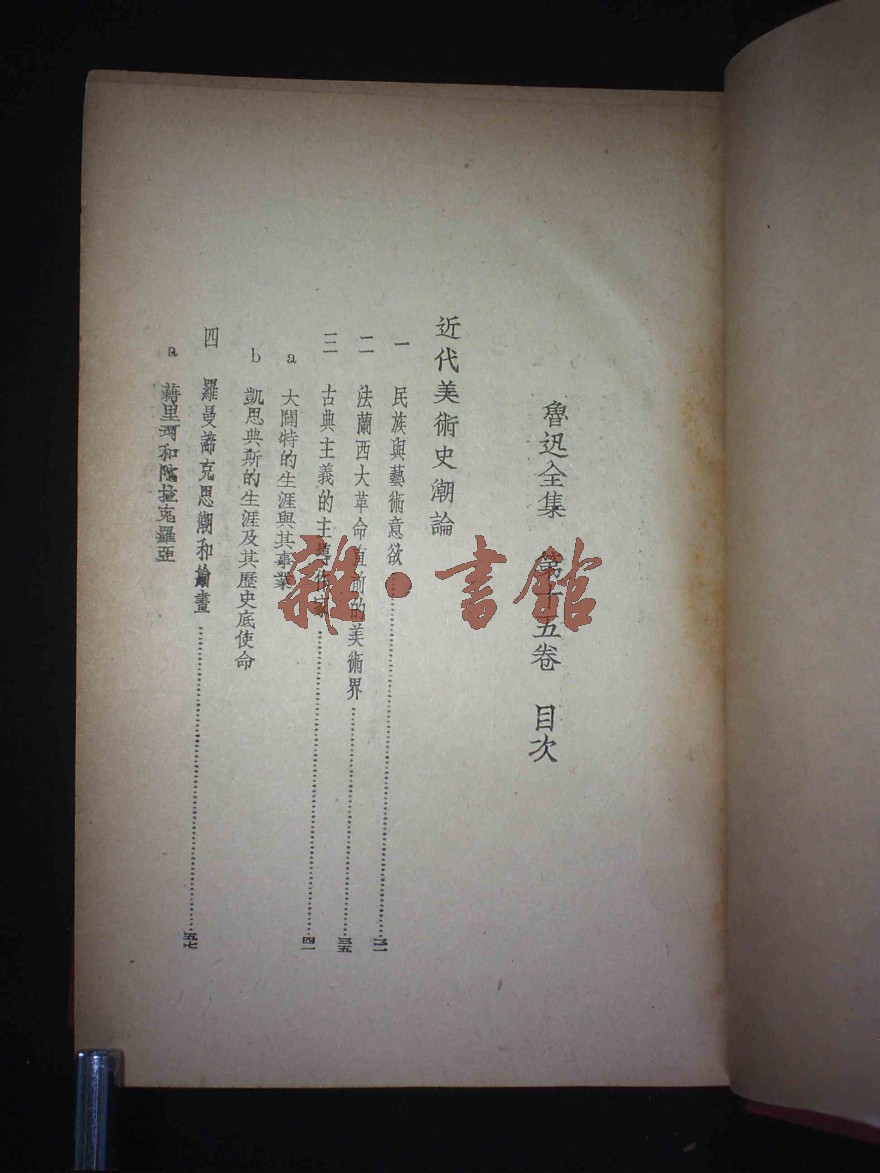 魯迅全集 第十五卷 目次
近代美術史潮論
一 民族與藝術意欲
二 法蘭西大革命直前的美術界……三五
三 古典主義的主導作家……四一
a 大闢特的生涯與其事業
b 凱思典斯的生涯及其歷史底使命
四 羅曼諦克思潮和繪畫……五七
a 藉里珂和陀拉克羅亞
雜·書館